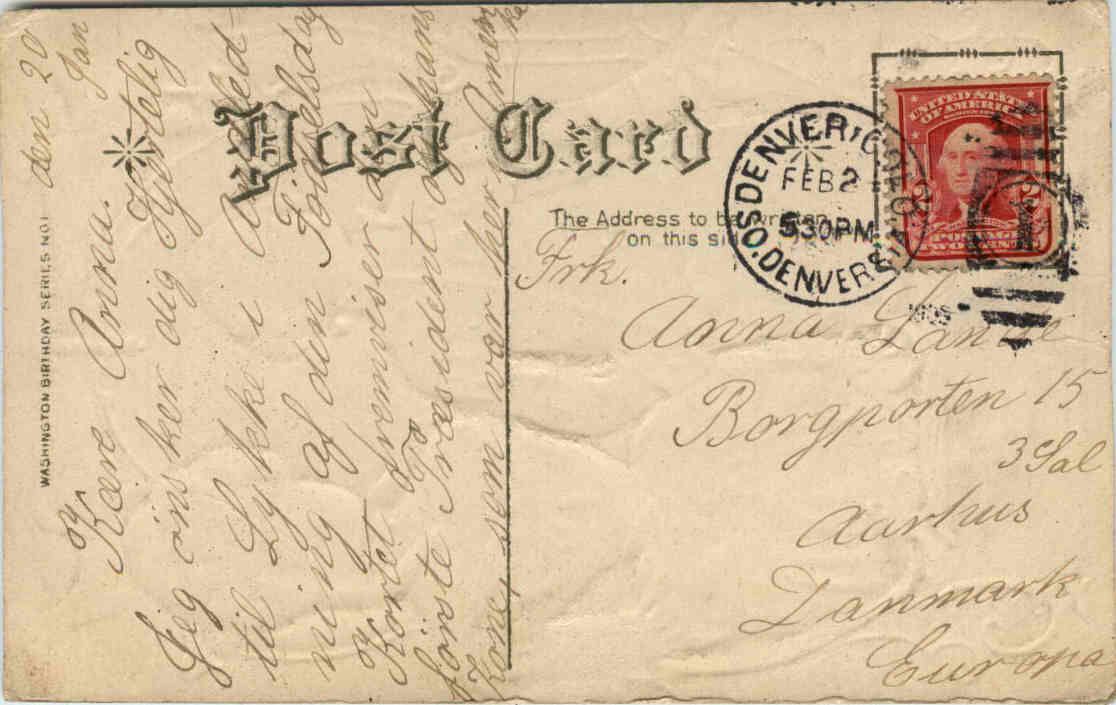 Post Card
The Address to be written
on this side
WASHINGTON BIRTHDAY SERIES NO 1
UNITED STATES
OF AMERICA
POSTAGE
TWO CENTS
DENVER, COLO.
SO. DENVER STA.
FEB 2
530PM
den 20
Jan
Kære Anna.
Jeg önsker dig Hjertelig
til Lykke i Anled-
ning af din Födselsdag
Kortet fremviser den
förste Præsident og hans
Kone, som var her Amerika
Frk.
Anna Lange
Borgporten 15
3 Sal
Aarhus
Danmark
Europa